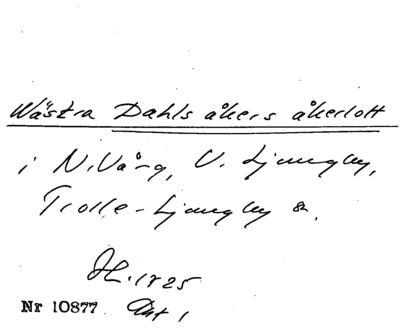 Wästra Dahls åkers åkerlott
i N. Vårg, V. Ljungby,
Trolle-Ljungby
H. 1825
Nr 10877 Akt 1